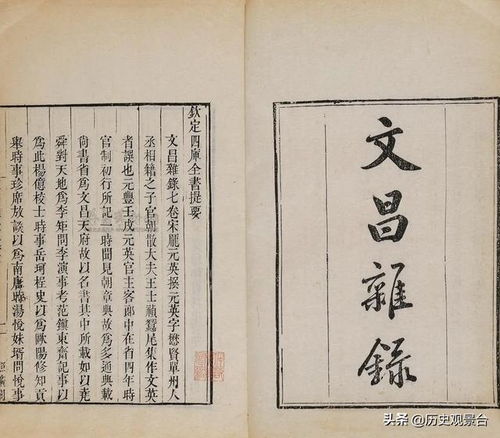 文昌雜錄
欽定四庫全書提要
文昌雜錄七卷宋龎元英撰元英字懋賢單州人
丞相籍之子官朝散大夫王士禎蠶尾集作文英
者誤也元豐壬戌元英官主客郎中在省四年時
官制初行所記一時聞見朝章典故為多通典載
尚書省為文昌天府故以名書其中所載如以堯
舜對天地為李矩問李演事考范鎮東齋記事以
為此楊億校士時事岳珂桯史以為歐陽修知貢
舉時事珍席放談以為南唐時湯悅妹壻問悅事
头条 @历史观景台